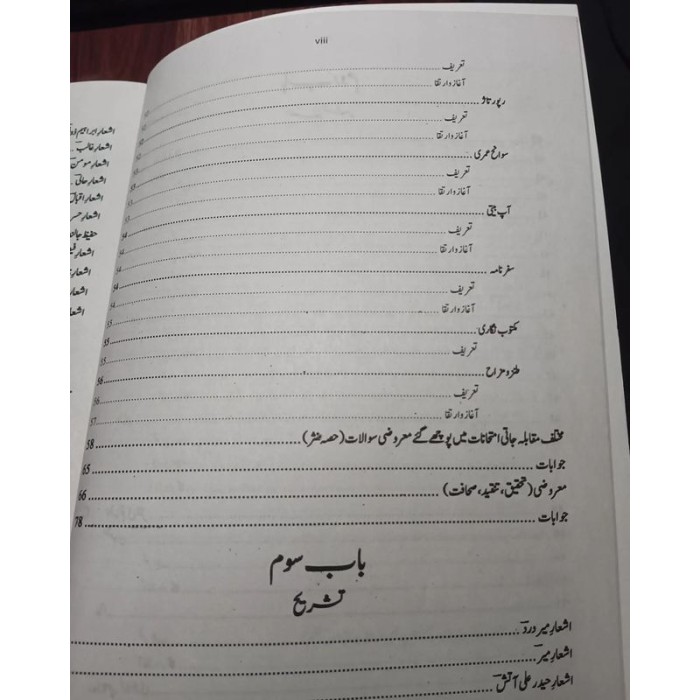 viii
تعریف
آغاز و ارتقا
رپورتاژ
تعریف
آغاز و ارتقا
سوانح عمری
تعریف
آغاز و ارتقا
آپ بیتی
تعریف 54
آغاز و ارتقا 54
سفر نامہ 54
تعریف 54
آغاز و ارتقا 55
مکتوب نگاری 55
تعریف 55
طنز و مزاح 56
تعریف 56
آغاز و ارتقا 57
مختلف مقابلہ جاتی امتحانات میں پوچھے گئے معروضی سوالات (حصہ نثر) 58
جوابات 65
معروضی (تحقیق، تنقید، صحافت) 66
جوابات 78
باب سوم
تشریح
اشعارِ میر درد
اشعارِ میر
اشعارِ حیدر علی آتش
اشعارِ ابراہیم ذوق
اشعارِ غالب
اشعارِ مومن
اشعارِ حالی
اشعارِ اقبال
اشعارِ
حفیظ
اشعارِ
اشعارِ
اشعارِ
اشعارِ